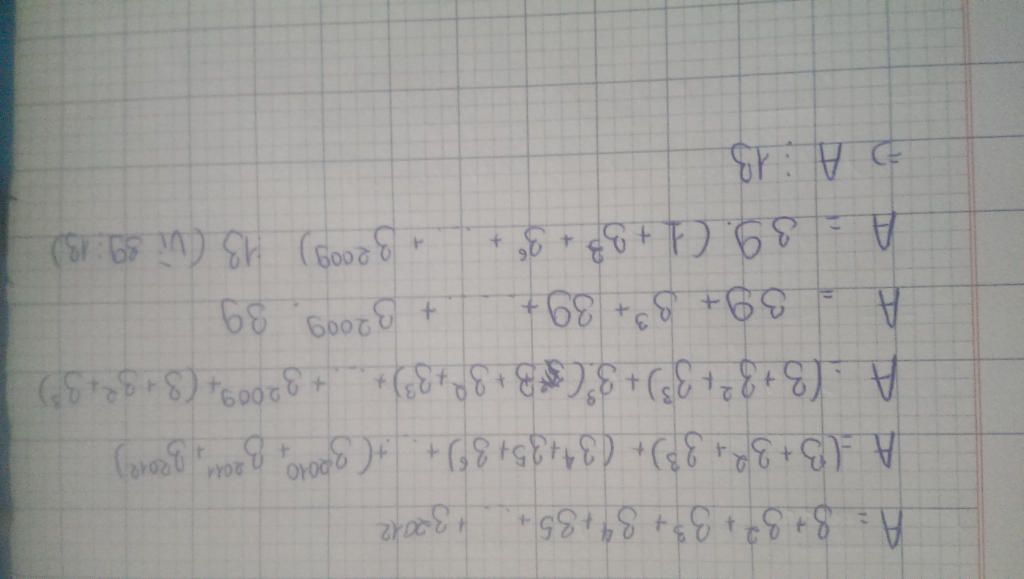 A = 3 + 3² + 3³ + 3⁴ + 35 + ... + 3²⁰¹²
A = (3 + 3² + 3³) + (3⁴ + 35 + 3⁶) + ... + (3²⁰¹⁰ + 3²⁰¹¹ + 3²⁰¹²)
A = (3 + 3² + 3³) + 3³ (3 + 3² + 3³) + ... + 3²⁰⁰⁹ + (3 + 3² + 3³)
A = 39 + 3³ + 39 + ... + 3²⁰⁰⁹ . 39
A = 39 . (1 + 3³ + 3⁶ + ... + 3²⁰⁰⁹) 13 (Vì 39 : 13)
=> A : 13